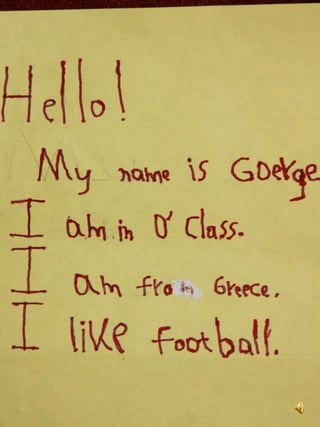 Hello!
My name is Goerge
I am in O' Class.
I am from Greece.
I like football.